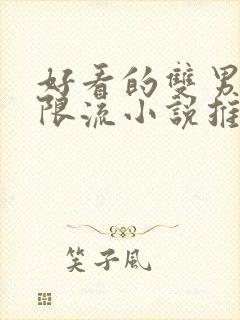 好看的雙男
限流小說推
笑子風